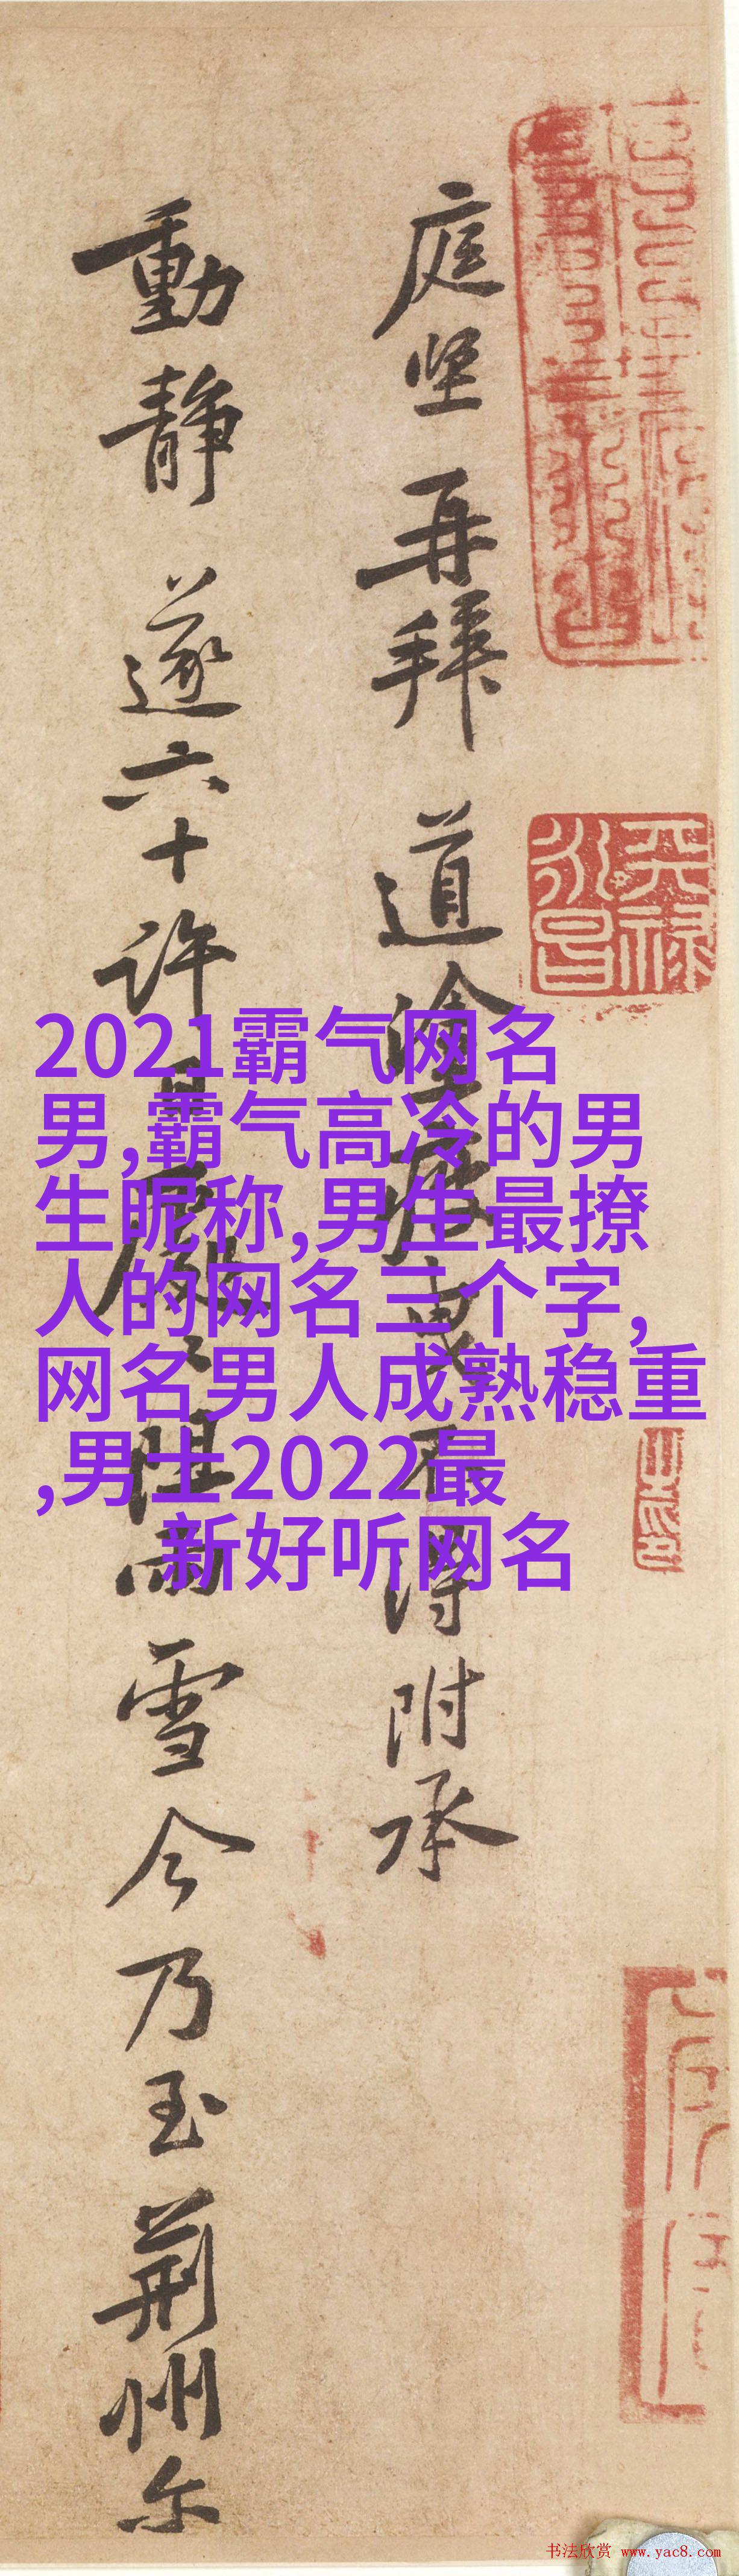 庭坚再拜道塗疲曳不得附承
動靜遂六十許日厳〻阻雨雪今乃至荊州尔
天禄
永昌
2021霸气网名
男,霸气高冷的男
生昵称,男生最撩
人的网名三个字,
网名男人成熟稳重
,男士2022最
新好听网名
书法欣赏 www.yac8.com